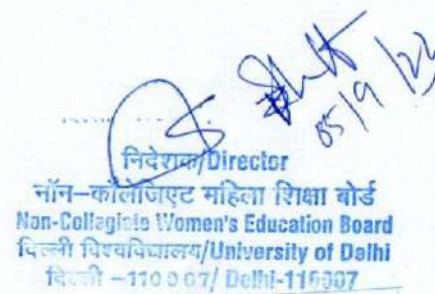 05/9/22
निदेशक/Director
नॉन-कॉलेजिएट महिला शिक्षा बोर्ड
Non-Collegiate Women's Education Board
दिल्ली विश्वविद्यालय/University of Delhi
दिल्ली -110007/ Delhi-110007